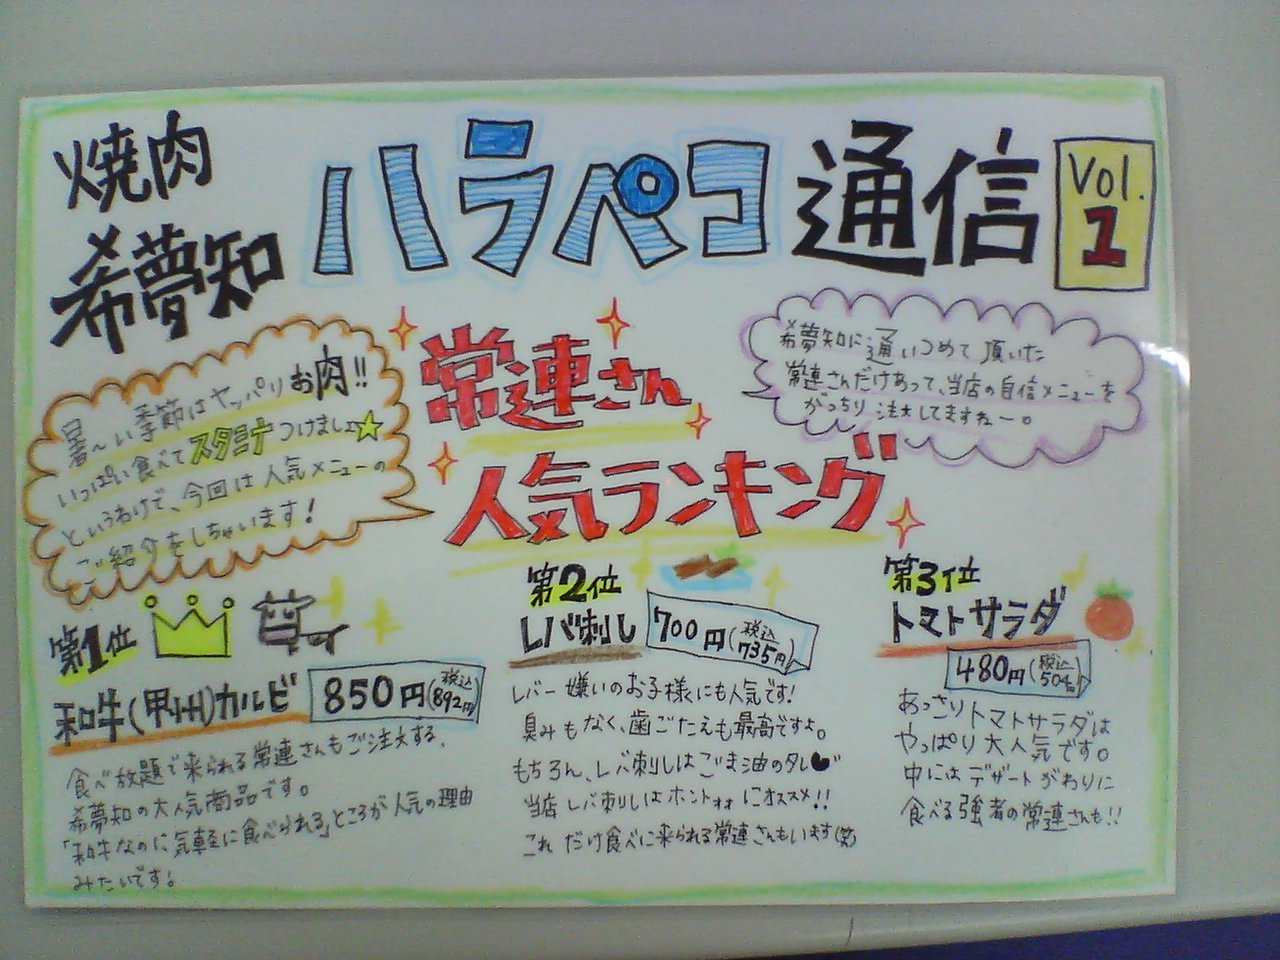 焼肉
希夢知
ハラペコ通信
Vol.
1
暑〜い季節はヤッパリお肉!!
いっぱい食べてスタミナつけましょ☆
というわけで、今回は人気メニューの
ご紹介をしちゃいます!
常連さん
人気ランキング
希夢知に通いつめて頂いた
常連さんだけあって、当店の自信メニューを
がっちり注文してますねー。
第1位
和牛(甲州)カルビ
850円(税込892円)
食べ放題で来られる常連さんもご注文する、
希夢知の大人気商品です。
「和牛なのに気軽に食べられる」ところが人気の理由
みたいです!
第2位
レバ刺し
700円(税込735円)
レバー嫌いのお子様にも人気です!
臭みもなく、歯ごたえも最高ですよ。
もちろん、レバ刺しはごま油のタレ♥"
当店レバ刺しはホントォォにオススメ!!
これだけ食べに来られる常連さんもいます(笑)
第3位
トマトサラダ
480円(税込504円)
あっさりトマトサラダは
やっぱり大人気です。
中にはデザートがわりに
食べる強者の常連さんも!!